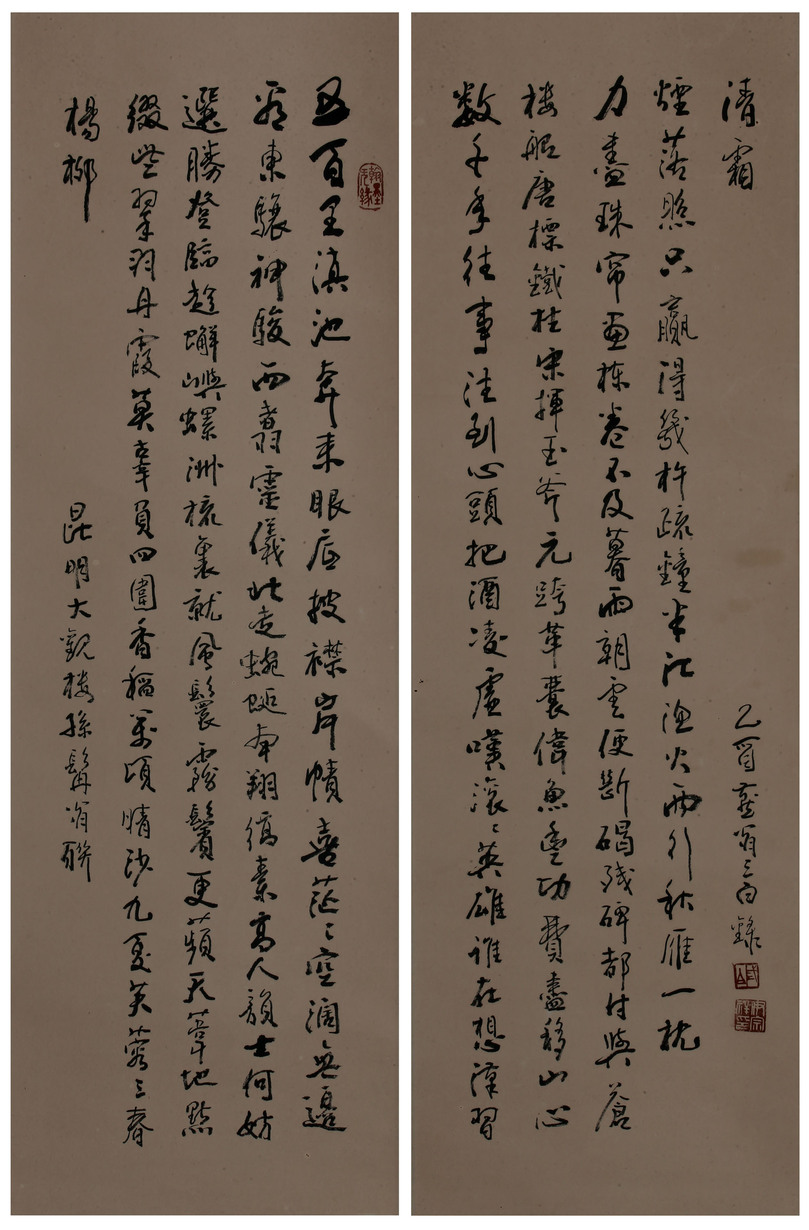 五百里滇池奔来眼底披襟岸幘喜茫々空闊無邊
看東驤神駿西翥靈儀北走蜿蜒南翔縞素高人韻士何妨
選勝登臨趁蠏嶼螺洲梳裹就風鬟霧鬢更蘋天葦地點
綴些翠羽丹霞莫辜負四圍香稻万頃晴沙九夏芙蓉三春
楊柳
昆明大觀樓孫髯翁聯
数千年往事注到心頭把酒凌虛嘆滾々英雄誰在想漢習
楼船唐標鐵柱宋揮玉斧元跨革囊偉烈豐功費盡移山心
力盡珠帘画棟卷不及暮雨朝雲便断碣残碑都付與蒼
煙落照只贏得幾杵疏鐘半江漁火两行秋雁一枕
清霜
乙酉翁三白錄